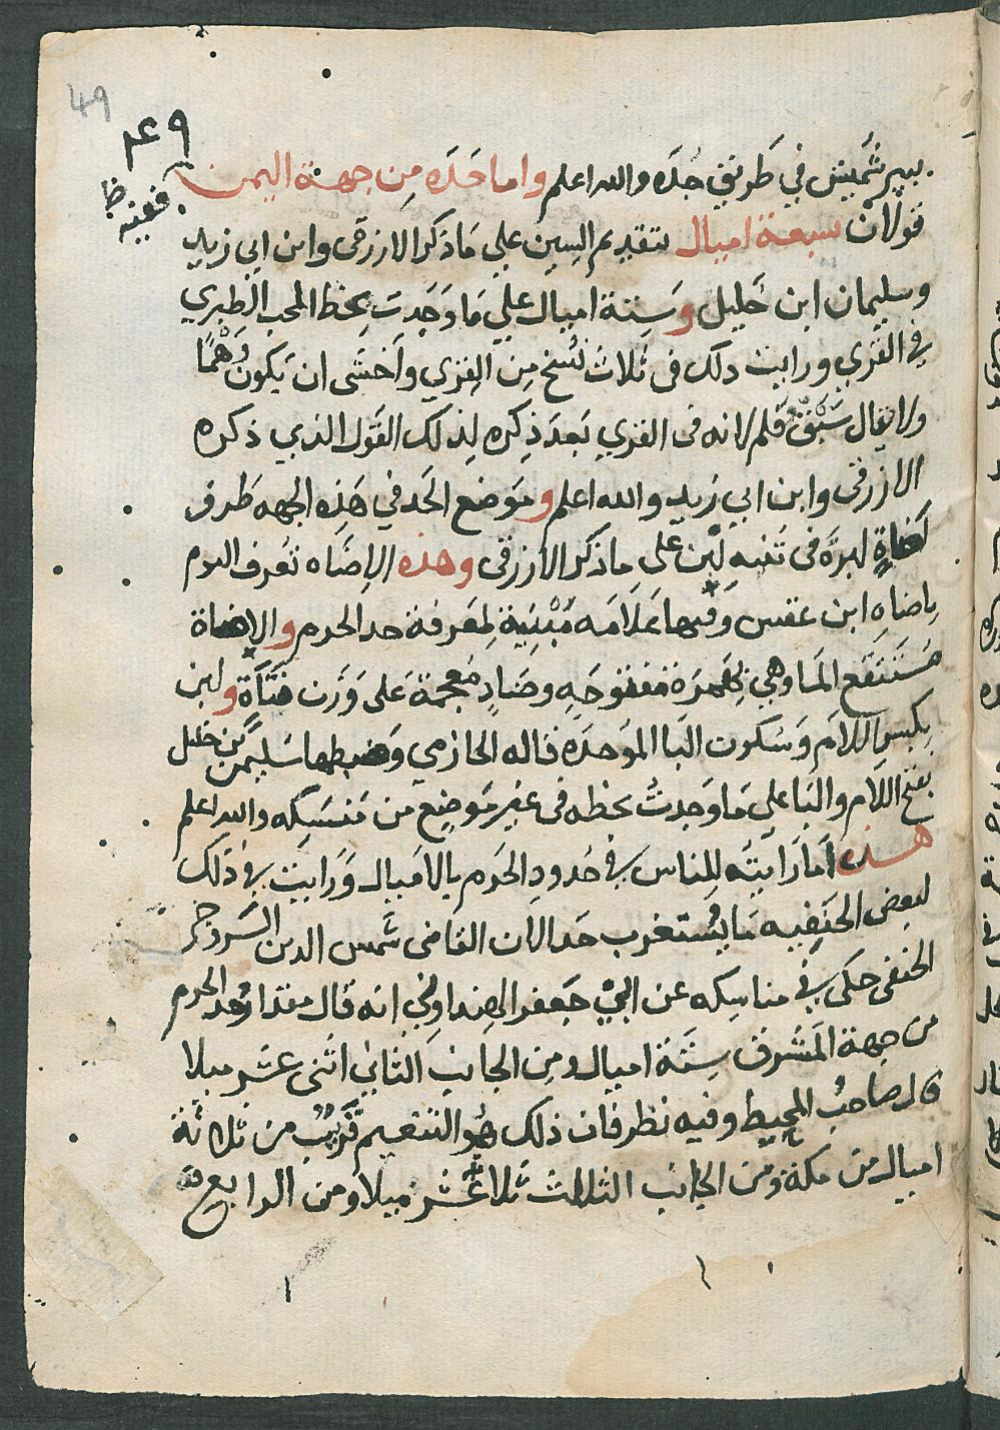 49
٤٩
ببير شميس في طريق جدة والله اعلم واما حده من جهة اليمن ففيه
قولان سبعة اميال بتقديم السين علي ما ذكر الازرقي وابن ابي زيد
وسليمان ابن خليل وستة اميال علي ما وجدت بخط المحب الطبري
في القري ورايت ذلك في ثلاث نسخ من القري واخشى ان يكون وهما
ولا يقال سبق قلم لانه في القري بعد ذكره لذلك القول الذي ذكره
الازرقي وابن ابي زيد والله اعلم وموضع الحد في هذه الجهه طرف
اضاة لبن في ثنيه لبن على ما ذكر الازرقي وهذه الاضاه تعرف اليوم
باضاه ابن عقس وفيها علامه مبنية لمعرفة حد الحرم والاضاة
مستنقع الما وهي بهمزة مفتوحه وضاد معجمة على وزن فتاة ولبن
بكسر اللام وسكون البا الموحده قاله الحازمي وضبطها سليمن بن خليل
بفتح اللام والبا علي ما وجدت بخطه في غير موضع من منسكه والله اعلم
هذا ما رايته للناس في حدود الحرم بالاميال ورايت في ذلك
لبعض الحنفيه ما يستغرب جدا لان القاضي شمس الدين السروجي
الحنفي حكى في مناسكه عن ابي جعفر الهنداوني انه قال مقدار حد الحرم
من جهة المشرق ستة اميال ومن الجانب الثاني اثنى عشر ميلا
قال صاحب المحيط وفيه نظر فان ذلك هو التنعيم قريب من ثلاثة
اميال من مكة ومن الجانب الثالث ثلاثة عشر ميلا ومن الرابع